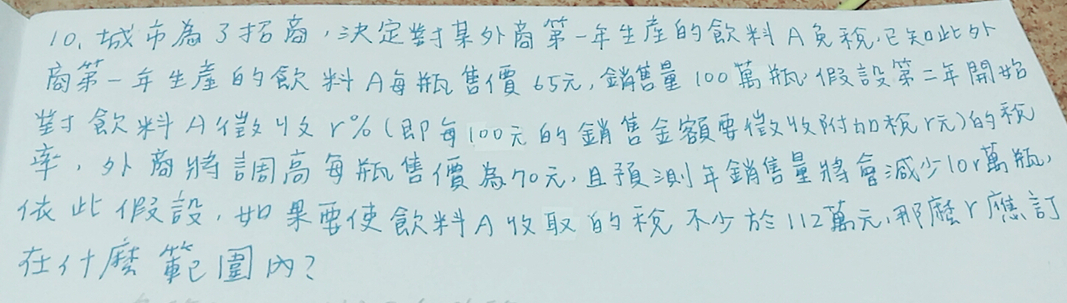 10. 城市為了招商，決定對某外商第一年生産的飲料A免稅，已知此外
商第一年生產的飲料A每瓶售價65元，銷售量100萬瓶，假設第二年開始
對飲料A徵收r%(即每100元的銷售金額要徵收附加稅r元)的稅
率，外商將調高每瓶售價為70元，且預測年銷售量將會減少10r萬瓶，
依此假設，如果要使飲料A收取的稅不少於112萬元，那麼r應訂
在什麼範圍內？